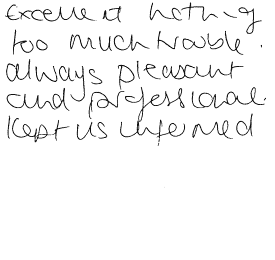 Excellent nothing
too much trouble.
always pleasant
and professional
kept us informed